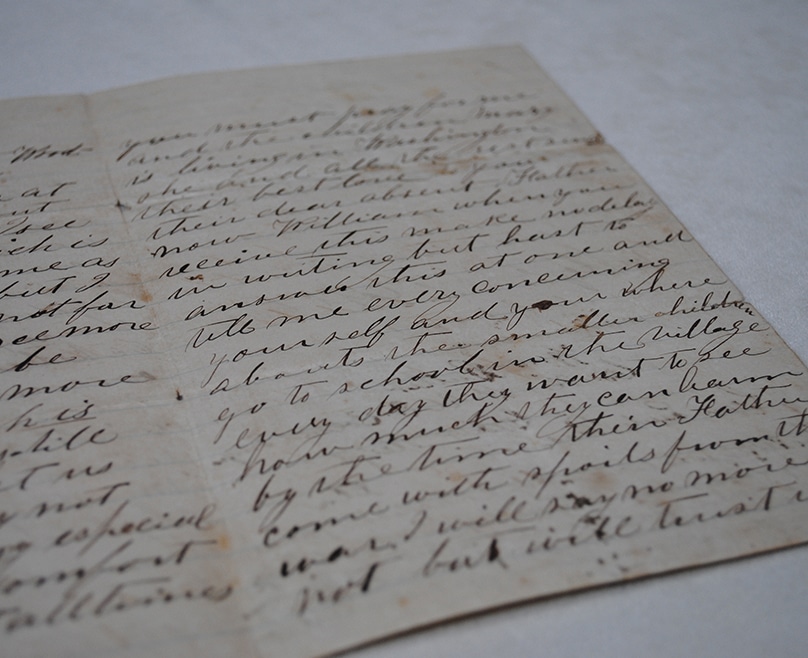 Wood
at
see
ich is
me as
but I
not far
see more
be
more
h is
still
et us
y not
especial
comfort
all times
you must pray for me
and the children Mary
is living in Washington
she and all the rest send
their best love your
their dear absent Father
now William when you
receive this make no delay
in writing but hast to
answer this at one and
till me every concerning
your self and your where
abouts the smaller children
go to school in the village
every day they want to see
how much they can learn
by the time their Father
come with spoils from th
war I will say no more
not but will trust